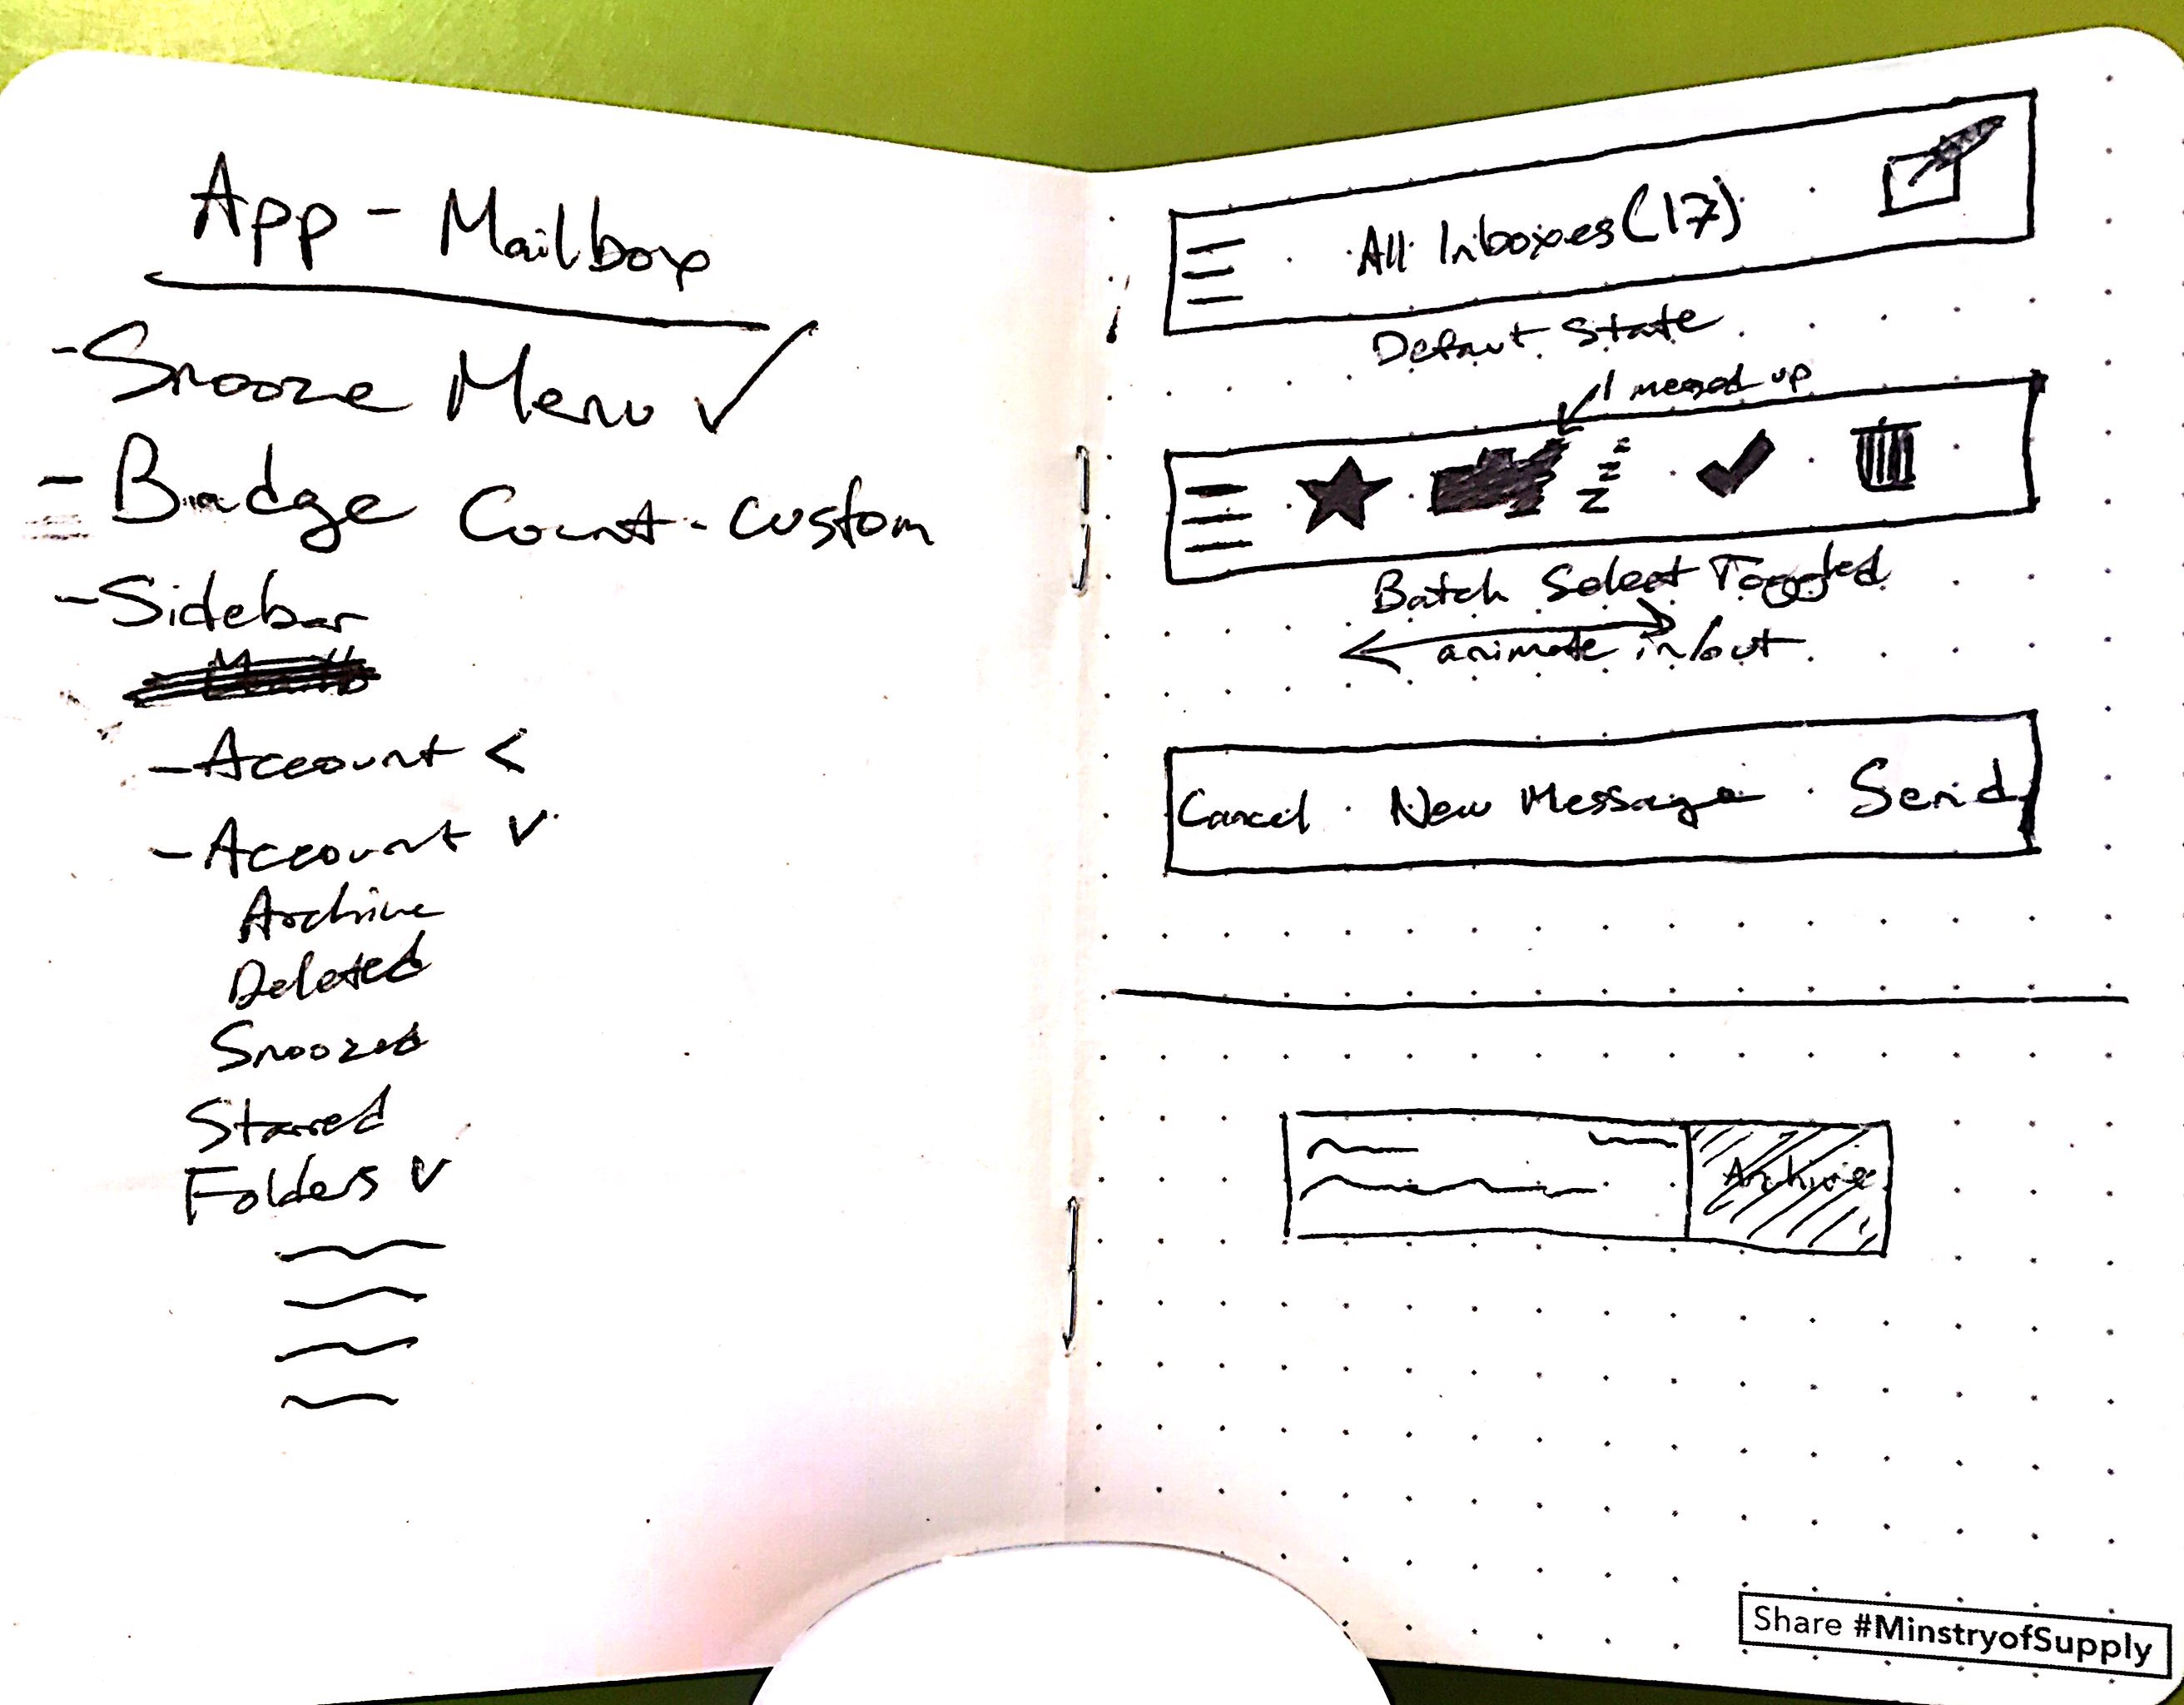 App - Mailbox
- Snooze Menu ✓
- Badge Count - custom
- Sidebar
- Account <
- Account v
Archive
Deleted
Snoozed
Starred
Folders v
All Inboxes (17)
Defaut State
I messed up
z z z
Batch Select Toggled
animate in/out
Cancel New Message Send
Archive
Share #MinstryofSupply